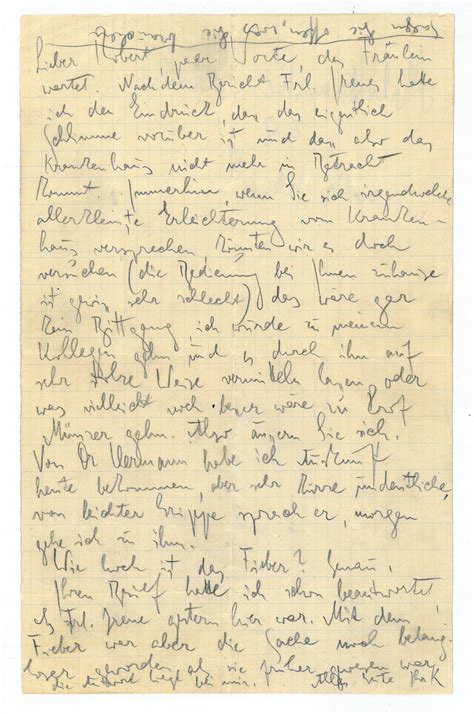 Lieber Robert, paar Worte, das Fräulein
wartet. Nach dem Bericht Frl. Irenes hatte
ich den Eindruck, dass das eigentlich
Schlimme vorüber ist und dass also das
Krankenhaus nicht mehr in Betracht
kommt. Immerhin, wenn Sie sich irgendwelche
allerkleinste Erleichterung vom Kranken-
haus versprechen, könnten wir es doch
versuchen (die Bedienung bei Ihnen zuhause
ist gewiss sehr schlecht) das wäre gar
kein Bittgang ich würde zu meinem
Kollegen gehn und es durch ihn auf
sehr stolze Weise vermitteln lassen oder
was vielleicht noch besser wäre zu Prof
Münzer gehn. Also äussern Sie sich.
Von Dr Hermann habe ich Auskunft
heute bekommen, aber sehr kurze undeutliche,
von leichter Grippe sprach er, morgen
gehe ich zu ihm.
Wie hoch ist das Fieber? Genau.
Ihren Brief hatte ich schon beantwortet
als Frl. Irene gestern hier war. Mit dem
Fieber war aber die Sache noch belang-
loser geworden als sie früher gewesen war,
die Antwort liegt bei mir. Alles Gute Ihr K